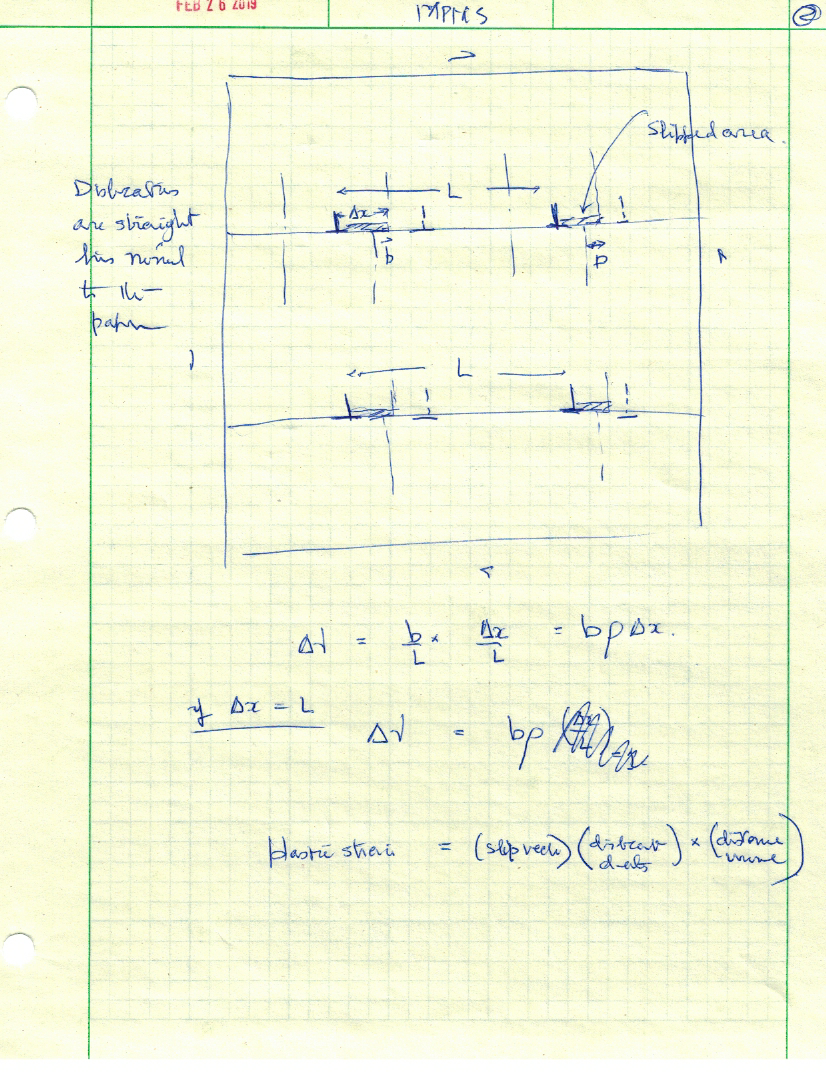 FEB 26 2019
MPMS
2
Slipped area.
L
Dislocations
are straight
lines normal
to the
paper
Δx
b
b
L
Δγ = b/L × Δx/L = bρΔx.
if Δx = L
Δγ = bρ
plastic strain = (slip vector) (dislocat density) × (distance